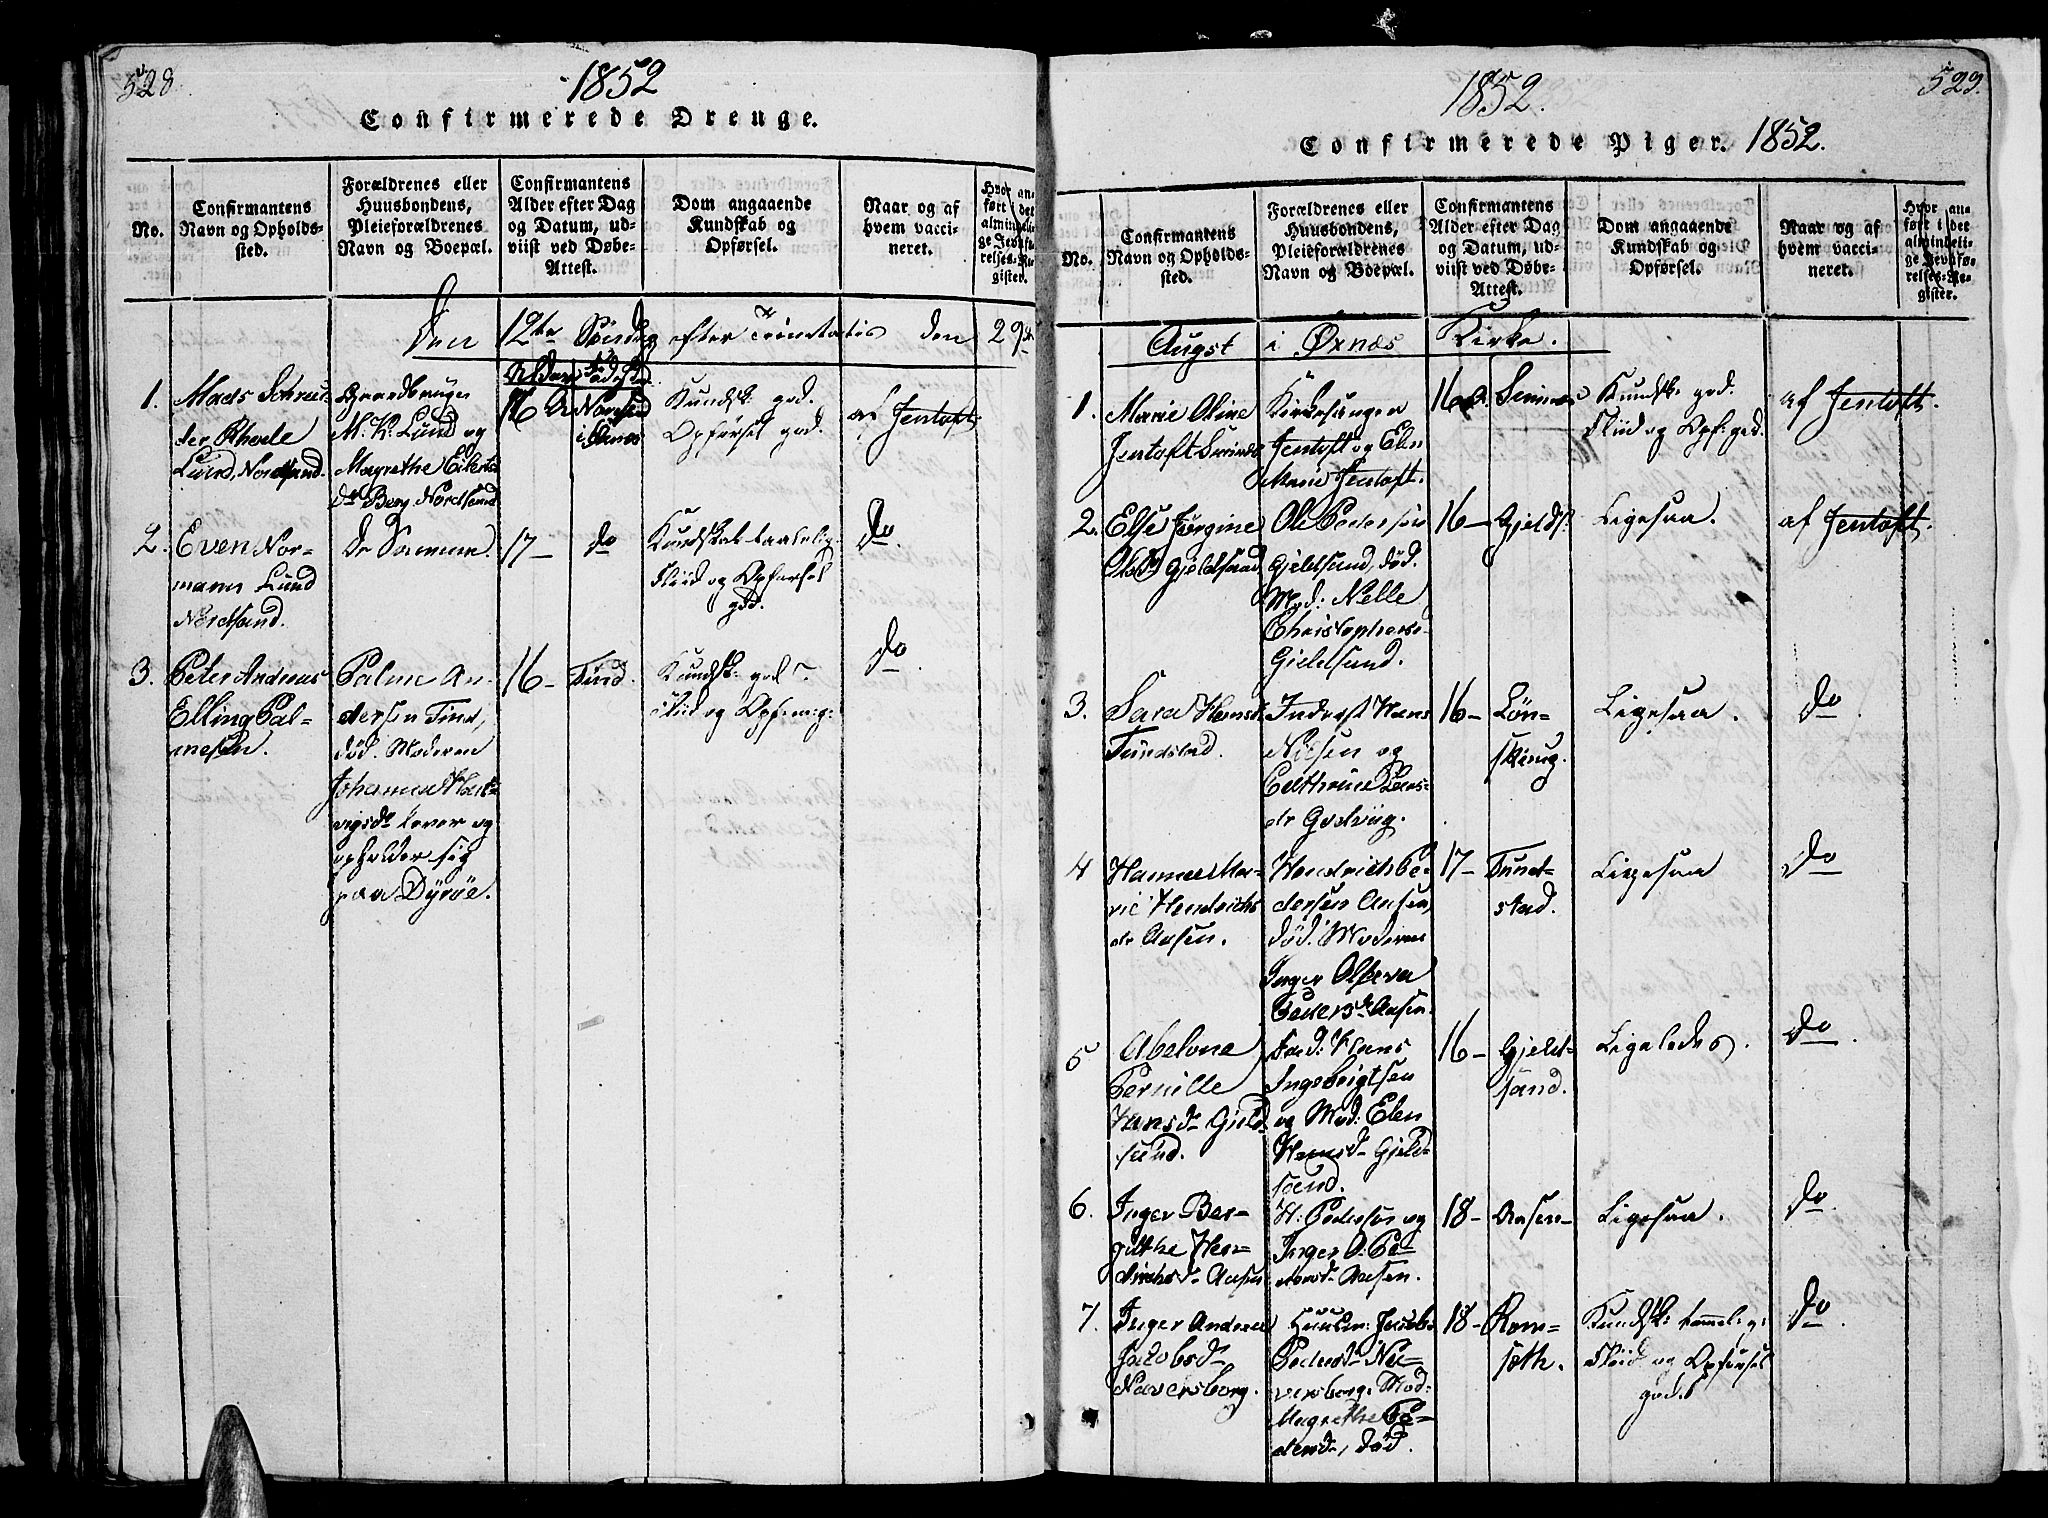 528
1852
Confirmerede Drenge.
No.
Confirmantens
Navn og Opholds-
sted.
Forældrenes eller
Huusbondens,
Pleieforældrenes
Navn og Boepæl.
Confirmantens
Alder efter Dag
og Datum, ud-
viist ved Døbe-
Attest.
Dom angaaende
Kundskab og
Opførsel.
Naar og af
hvem vacci-
neret.
Hvor an-
ført i det
almindeli-
ge Jevnfø-
relses-Re-
gister.
Den 12te Søndag efter Trinitatis den 29de
Alder Fødested
1.
Mads Schreu-
der Rhode
Lund, Nordsand.
Gaardbruger
M. K. Lund og
Magrethe Eilerts
dr Berg Nordsand
16 A
Nordsand
i Øxnes
Kundsk: god.
Opførsel god.
af Jentoft
2.
Even Nor-
mann Lund
Nordsand.
De Samme.
17-
do
Kundskab taalelig.
Fliid og Opførsel
god.
do.
3.
Peter Andreas
Elling Pal-
mesen.
Palme An-
dersen Tind,
død. Moderen
Johanna Hart-
vigsdr lever og
opholder sig
paa Dyrøe.
16-
Tind.
Kundsk: god
Fliid og Opf: mg:
do.
529.
1852.
Confirmerede Piger. 1852.
No.
Confirmantens
Navn og Opholds-
sted.
Forældrenes eller
Huusbondens,
Pleieforældrenes
Navn og Boepæl.
Confirmantens
Alder efter Dag
og Datum, ud-
viist ved Døbe-
Attest.
Dom angaaende
Kundskab og
Opførsel.
Naar og af
hvem vacci-
neret.
Hvor an-
ført i det
almindeli-
ge Jevnfø-
relses-Re-
gister.
Augst i Øxnæs Kirke.
1.
Marie Oline
Jentoft
Kirkesanger
Jentoft og Elen
Marie Jentoft.
16
Kundsk: god.
Fliid og Opf: god.
af Jentoft.
2.
Else Jørgine
Olsdr Gjeldsand
Ole Pedersen
Gjeldsand, død.
Mod: Nelle
Christophers-
Gjeldsand.
16-
Gjelds:
Ligesaa.
af Jentoft.
3.
Sara Hansdr
Tundstad.
Inderst Hans
Nilsen og
Cathrine Lars-
dr Godviig.
16-
Løn-
skoug.
Ligesaa.
do.
4
Hanna Ma-
rie Hendrichs
dr Aasen.
Hendrich Pe-
dersen Aasen,
død. Moderen
Inger Olheva
Pedersdr Aasen.
17-
Tund-
stad.
Ligesaa
do
5
Abelone
Pernille
Hansdr Gjeld
sand.
Fad: Hans
Ingebrigtsen
og Mod: Elen
Hansdr Gjeld-
sand.
16-
Gjeld-
sand.
Ligeledes.
do.
6.
Inger Ber-
githe Hen-
drichsdr Aasen
H: Pedersen og
Inger O. Pe-
dersdr Aasen.
18-
Aasen-
Ligesaa.
do.
7.
Inger Andrea
Jacobsdr
Naversborg.
Huusm: Jacob
Na-
versborg. Mod:
Magrethe Pe-
dersdr, død.
18-
Rom-
sæth.
Kundsk: temmel: g:
Fliid og Opførsel
godt
do.